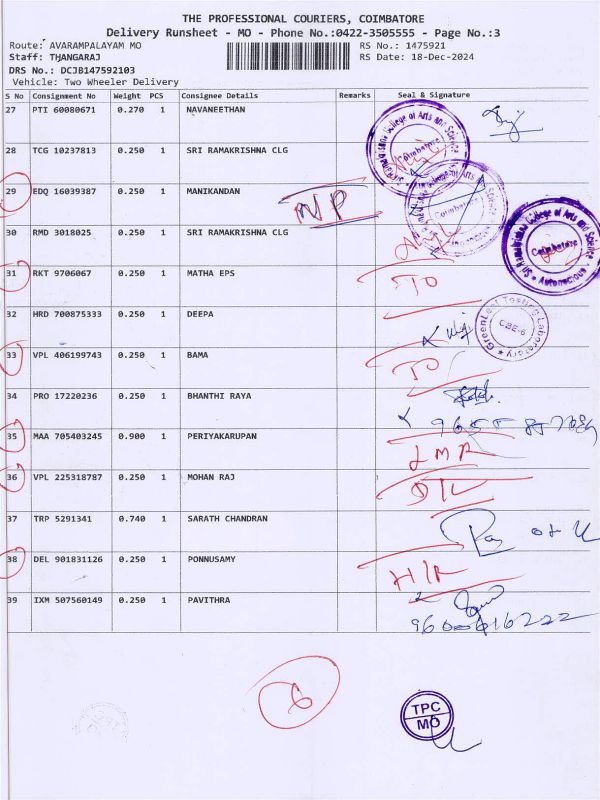 THE PROFESSIONAL COURIERS, COIMBATORE
Delivery Runsheet - MO - Phone No.:0422-3505555 - Page No.:3
Route: AVARAMPALAYAM MO RS No.: 1475921
Staff: THANGARAJ RS Date: 18-Dec-2024
DRS No.: DCJB147592103
Vehicle: Two Wheeler Delivery
S No Consignment No Weight PCS Consignee Details Remarks Seal & Signature
27 PTI 60080671 0.270 1 NAVANEETHAN
28 TCG 10237813 0.250 1 SRI RAMAKRISHNA CLG
29 EDQ 16039387 0.250 1 MANIKANDAN NP
30 RMD 3018025 0.250 1 SRI RAMAKRISHNA CLG
Sri Ramakrishna College of Arts and Science
Coimbatore
Autonomous
31 RKT 9706067 0.250 1 MATHA EPS TO
32 HRD 700875333 0.250 1 DEEPA
GreenLeaf Testing Laboratory
CBE-6
33 VPL 406199743 0.250 1 BAMA TO
34 PRO 17220236 0.250 1 BHANTHI RAYA
35 MAA 705403245 0.900 1 PERIYAKARUPAN
36 VPL 225318787 0.250 1 MOHAN RAJ
37 TRP 5291341 0.740 1 SARATH CHANDRAN
38 DEL 901831126 0.250 1 PONNUSAMY
39 IXM 507560149 0.250 1 PAVITHRA
9600616222
6
TPC
MO